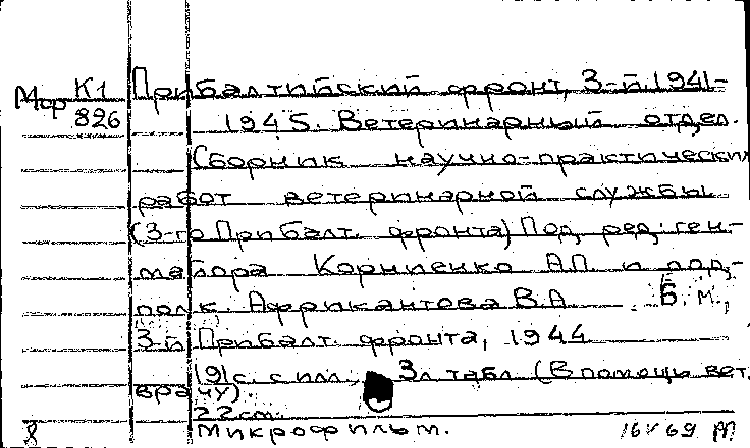 Мор К1 Прибалтийский фронт, 3-й. 1941-
826 1945. Ветеринарный отдел.
Сборник научно-практических
работ ветеринарной службы
(3-го Прибалт. фронта) Под ред. ген-
майора Корниенко А.П. и подп-
полк. Африкантова В.А Б. М.,
3-й Прибалт. фронта, 1944
191 с. с илл., 3л табл. (В помощь вет.
врачу).
22 см.
8 микрофильм. 16 V 69